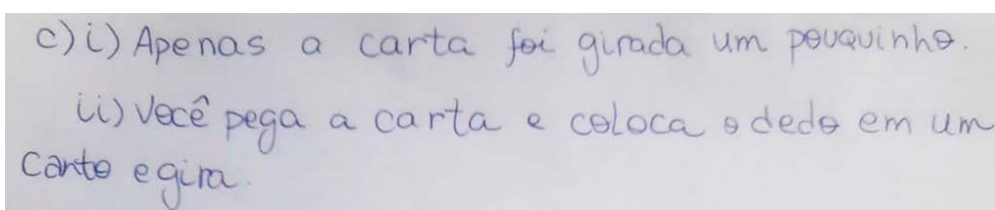 c) i) Apenas a carta foi girada um pouquinho.
ii) Você pega a carta e coloca o dedo em um
canto e gira.